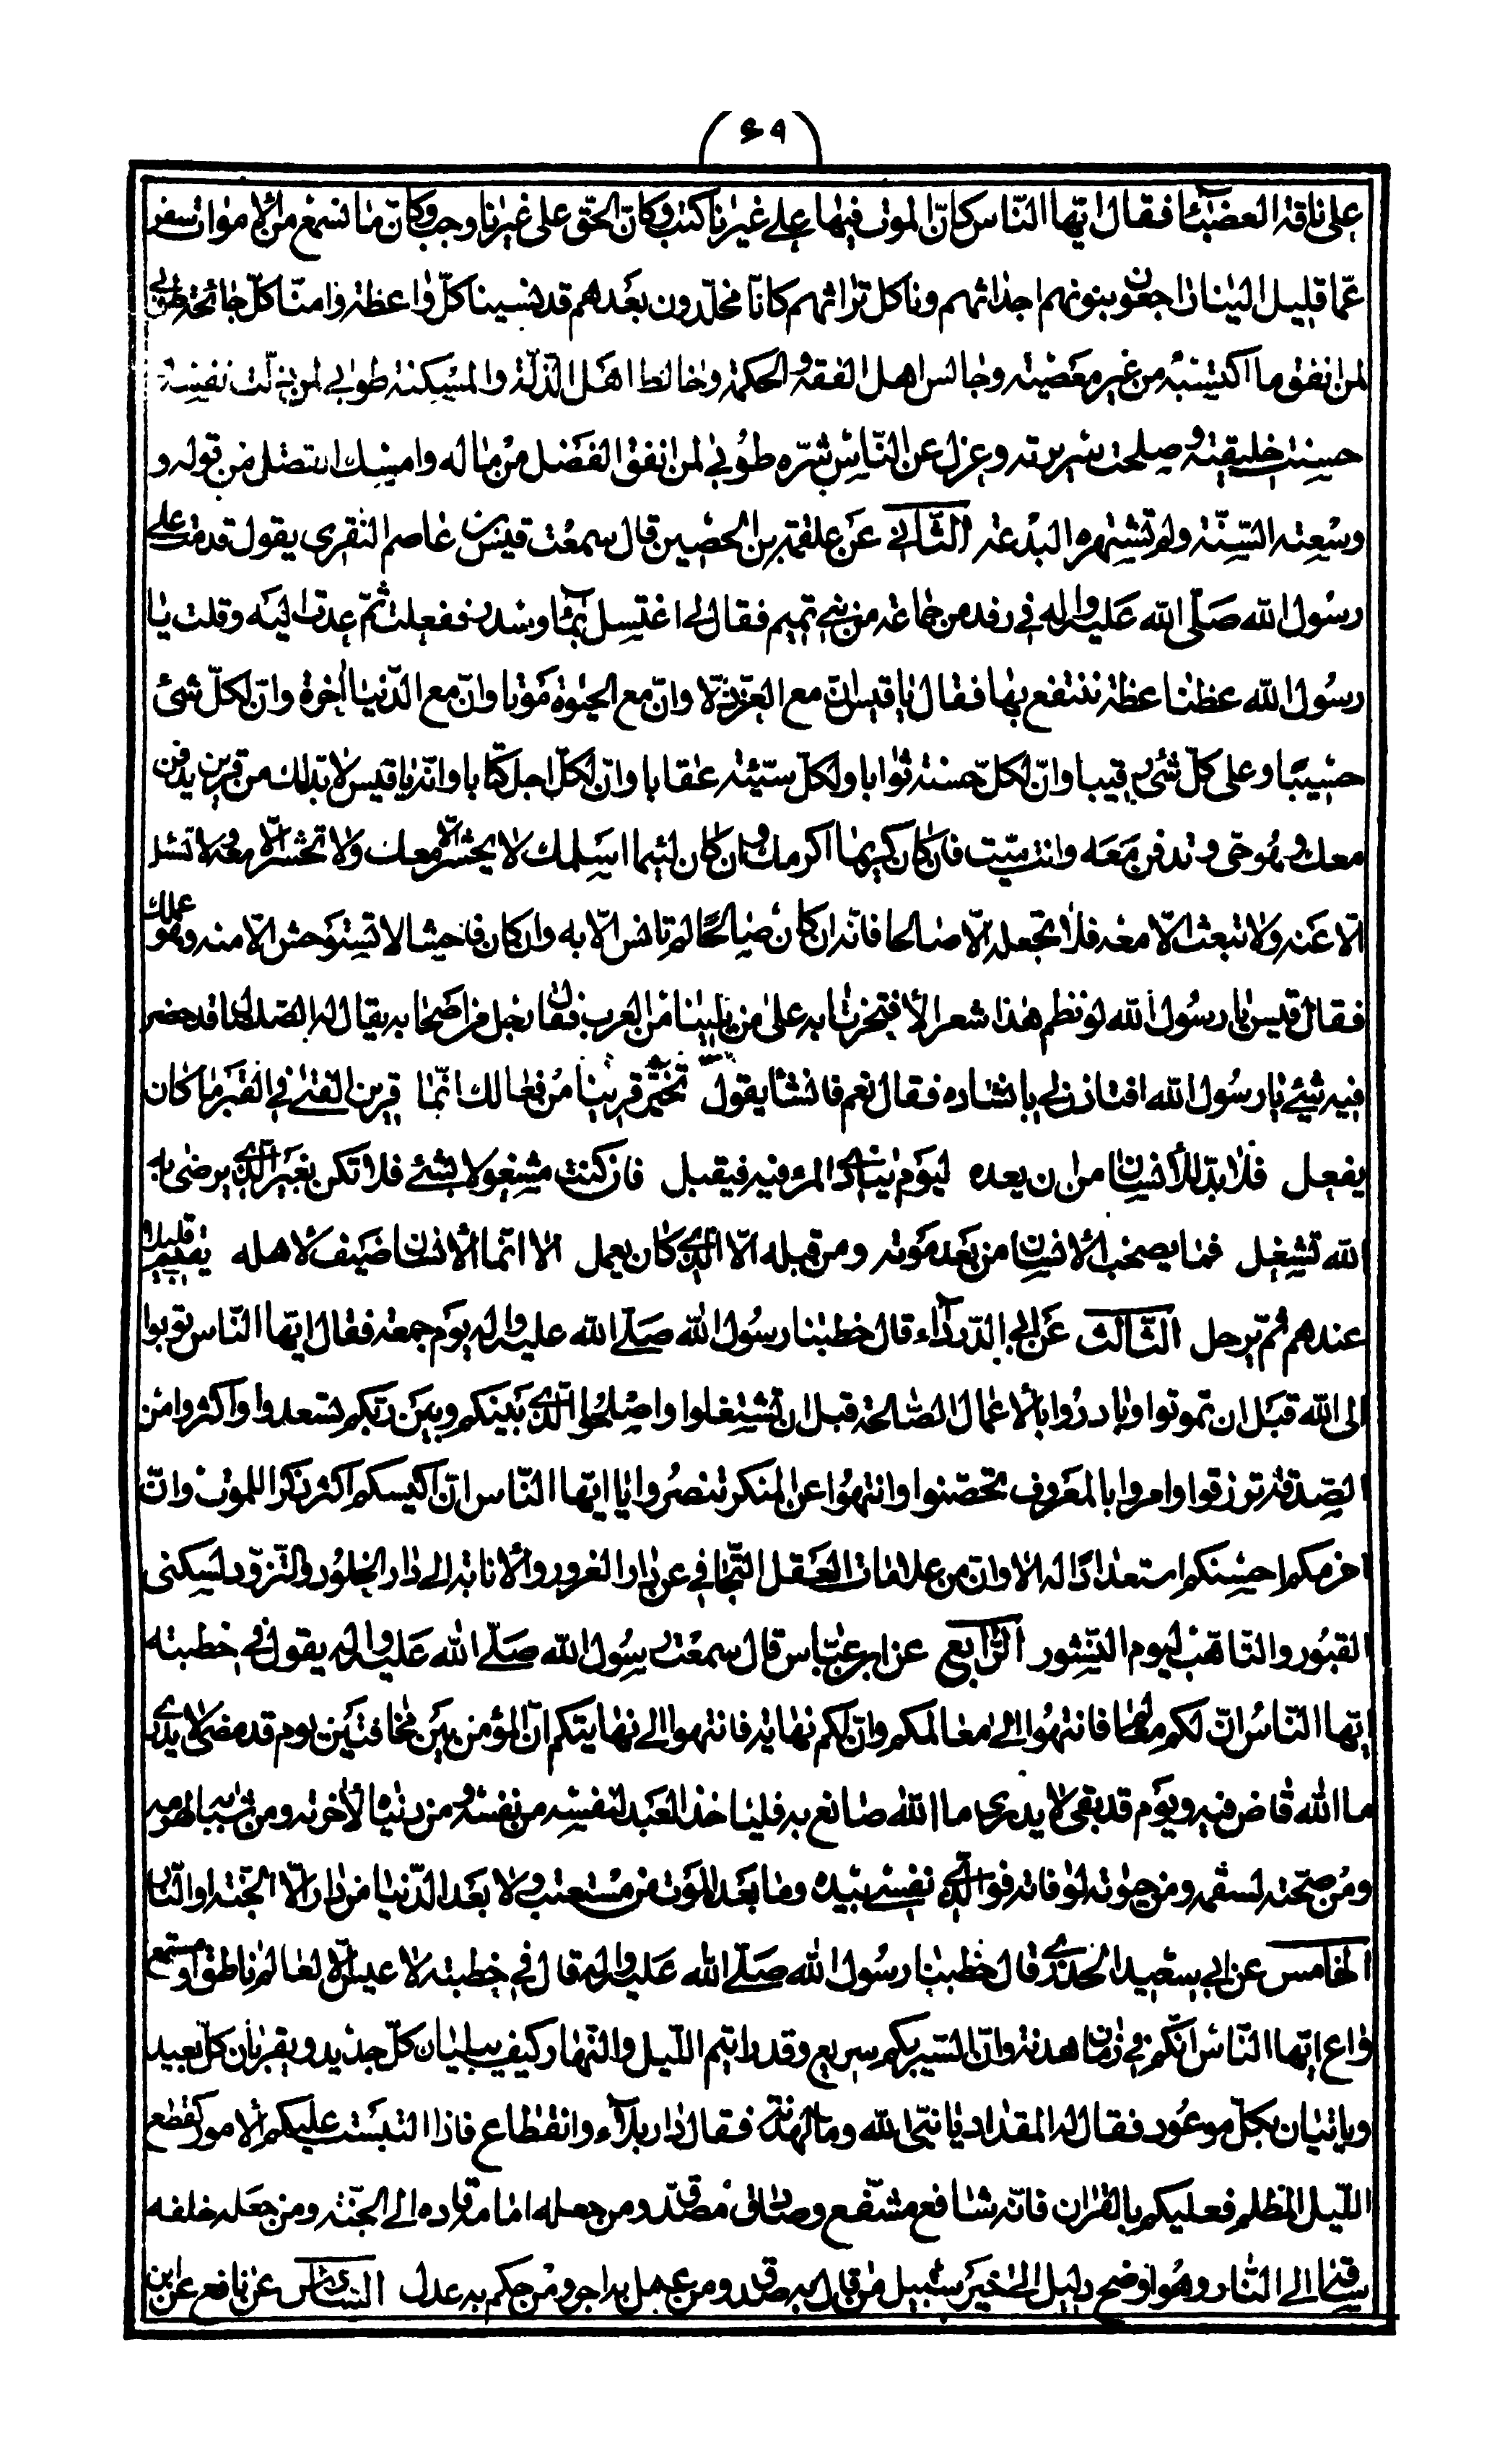 ٦٩
على ناقته العضباء فقال ايها الناس كان الموت فيها على غيرنا كتب وكان الحق على غيرنا وجب وكان ما نسمع من الاموات سفر
عما قليل الينا راجعون بنوئهم اجداثهم وناكل تراثهم كانا مخلدون بعدهم قد نسينا كل واعظة وامنا كل جائحة طوبى
لمن انفق ما اكتسبه من غير معصية وجالس اهل الفقه والحكمة وخالط اهل الذلة والمسكنة طوبى لمن ذلت نفسه
حسنت خليقته وصلحت سريرته وعزل عن الناس شره طوبى لمن انفق الفضل من ماله وامسك الفضل من قوله و
وسعته السنة ولم تشتهره البدعة الثانى عن علقمة بن الحصين قال سمعت قيس بن عاصم المنقرى يقول قدمت على
رسول الله صلى الله عليه واله فى وفد من جماعة من بنى تميم فقال لى اغتسل بماء وسدر ففعلت ثم عدت اليه وقلت يا
رسول الله عظنا عظة ننتفع بها فقال يا قيس ان مع العز ذلا وان مع الحيوة موتا وان مع الدنيا اخرة وان لكل شئ
حسيبا وعلى كل شئ رقيبا وان لكل حسنة ثوابا ولكل سيئة عقابا وان لكل اجل كتابا وانه يا قيس لا بد لك من قرين يدفن
معك وهو حى وتدفن معه وانت ميت فان كان كريما اكرمك وان كان لئيما اسلمك لا يحشر الا معك ولا تحشر الا معه ولا تسئل
الا عنه ولا تبعث الا معه فلا تجعله الا صالحا فانه ان كان صالحا لم تانس الا به وان كان فاحشا لا تستوحش الا منه وهو عملك
فقال قيس يا رسول الله لو نظم هذا شعرا لافتخرنا به على من يلينا من العرب فقال رجل من اصحابه يقال له الصلصال قد حضر
فيه شئ يا رسول الله افتاذن لى بانشاده فقال نعم فانشا يقول تخير قرينا من فعالك انما قرين الفتى فى القبر ما كان
يفعل فلا بد للانسان من ان يعده ليوم ينادى المرء فيه فيقبل فان كنت مشغولا بشئ فلا تكن بغير الذى يرضى به
الله تشغل فما يصحب الانسان من بعد موته ومن قبله الا الذى كان يعمل الا انما الانسان ضيف لاهله يقيم قليلا
عندهم ثم يرحل الثالث عن ابى الدرداء قال خطبنا رسول الله صلى الله عليه واله يوم جمعة فقال ايها الناس توبوا
الى الله قبل ان تموتوا وبادروا بالاعمال الصالحة قبل ان تشتغلوا واصلحوا الذى بينكم وبين ربكم تسعدوا واكثروا من
الصدقة ترزقوا وامروا بالمعروف تحصنوا وانتهوا عن المنكر تنصروا يا ايها الناس ان اكيسكم اكثر ذكرا للموت وان
احزمكم احسنكم استعدادا له الا وان من علامات العقل التجافى عن دار الغرور والانابة الى دار الخلود والتزود لسكنى
القبور والتاهب ليوم النشور الرابع عن ابن عباس قال سمعت رسول الله صلى الله عليه واله يقول فى خطبته
ايها الناس ان لكم معالما فانتهوا الى معالمكم وان لكم نهاية فانتهوا الى نهايتكم ان المؤمن بين مخافتين يوم قد مضى لا يدرى
ما الله قاض فيه ويوم قد بقى لا يدرى ما الله صانع به فلياخذ العبد لنفسه من نفسه ومن دنياه لاخرته ومن شبابه لهرمه
ومن صحته لسقمه ومن حيوته لوفاته فوالذى نفسى بيده وما بعد الموت من مستعتب ولا بعد الدنيا من دار الا الجنة او النار
الخامس عن ابى سعيد الخدرى قال خطبنا رسول الله صلى الله عليه واله قال فى خطبته لا عيش الا لعالم ناطق او مستمع
واع ايها الناس انكم فى زمان هدنة وان السير بكم سريع وقد رايتم الليل والنهار كيف يبليان كل جديد ويقربان كل بعيد
وياتيان بكل موعود فقال له المقداد يا نبى الله وما الهدنة فقال دار بلاء وانقطاع فاذا التبست عليكم الامور كقطع
الليل المظلم فعليكم بالقران فانه شافع مشفع وصادق مصدق ومن جعله امامه قاده الى الجنة ومن جعله خلفه
ساقه الى النار وهو اوضح دليل الى خير سبيل من قال به صدق ومن عمل به اجر ومن حكم به عدل السادس عن نافع عن ابن